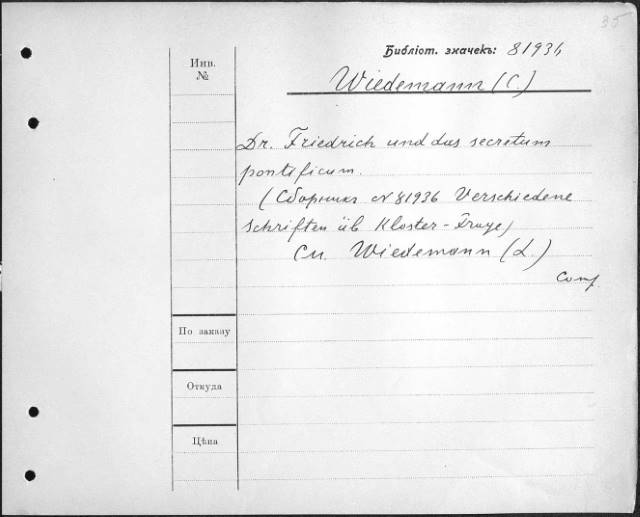 35
Библіот. значекъ: 81936
Инв.
№
Wiedemann (C.)
Dr. Friedrich und das secretum
pontificum.
(Сборникъ № 81936 Verschiedene
Schriften üb. Kloster-Frage)
См. Wiedemann (L.)
По заказу
Откуда
Цѣна